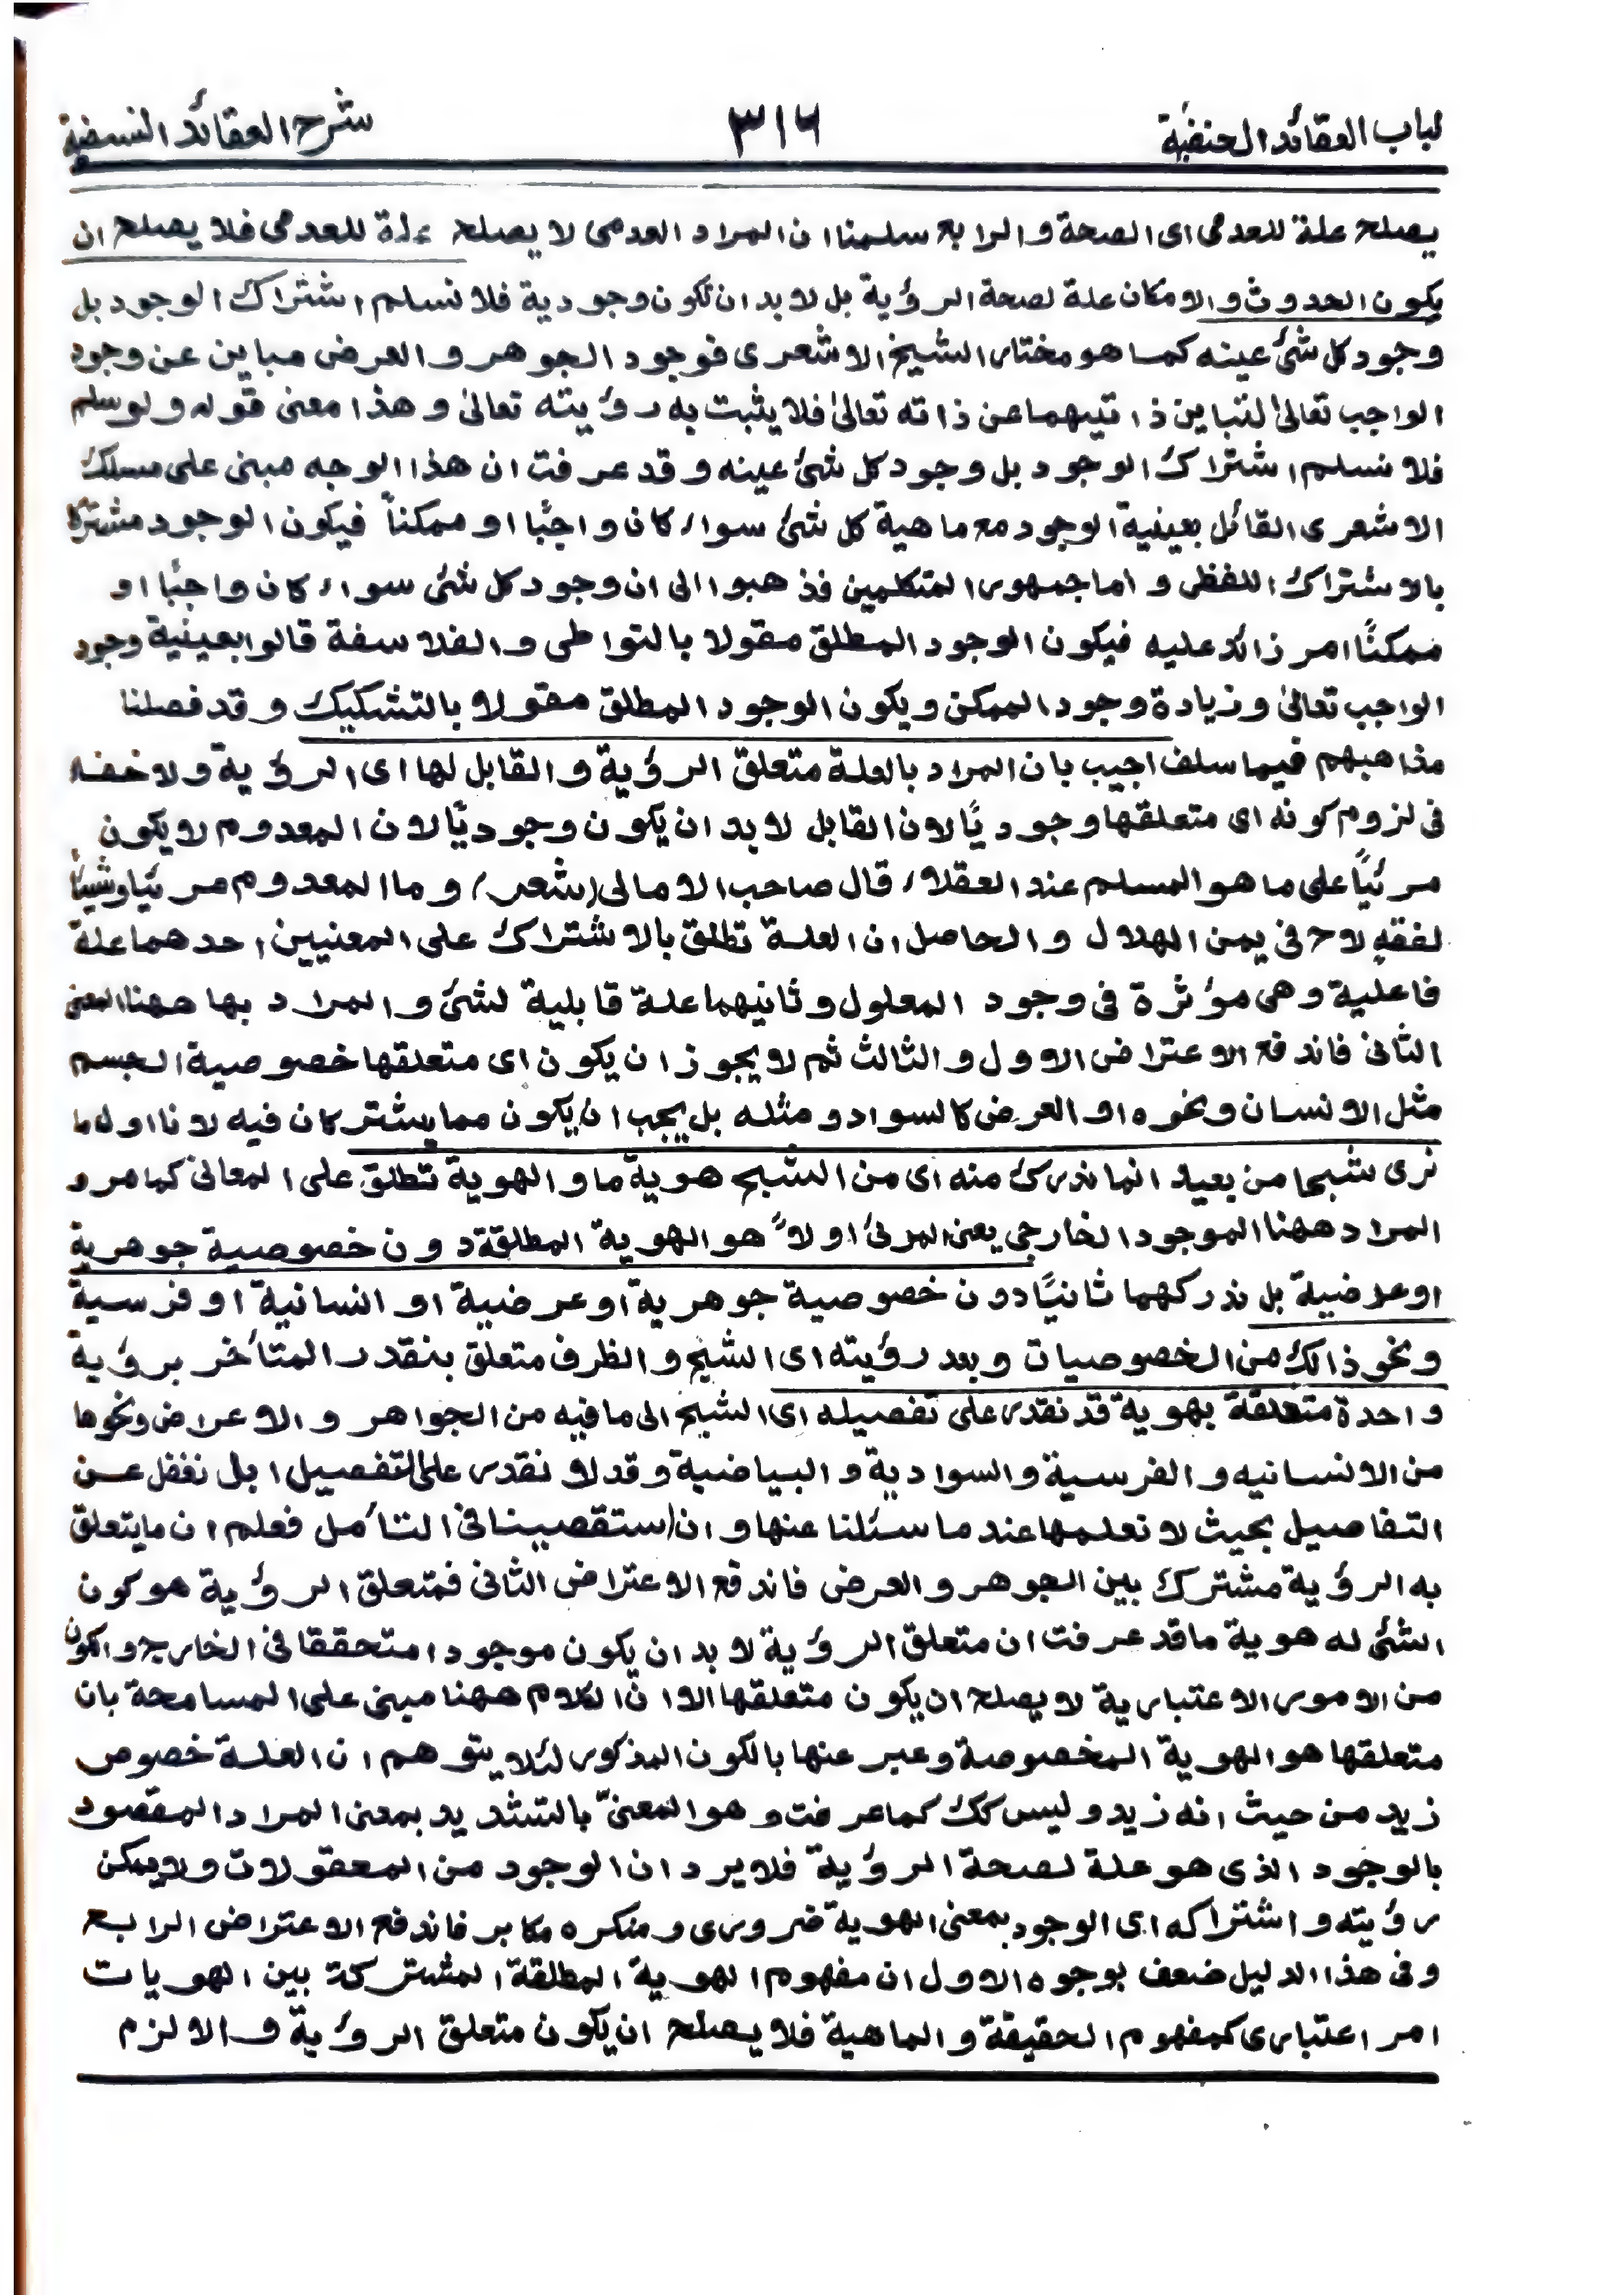 لباب العقائد الحنفية ٣١٦ شرح العقائد النسفية
يصلح علة للعدمى اى الصحة و الرابع سلمنا ان المراد العدمى لا يصلح علة للعدمى فلا يصلح ان
يكون الحدوث و الامكان علة لصحة الرؤية بل لا بد ان تكون وجودية فلا نسلم اشتراك الوجود بل
وجود كل شئ عينه كما هو مختار الشيخ الاشعرى فوجود الجوهر و العرض مباين عن وجود
الواجب تعالىٰ لتباين ذاتيهما عن ذاته تعالىٰ فلا يثبت به رؤيته تعالىٰ و هذا معنى قوله و لو سلم
فلا نسلم اشتراك الوجود بل وجود كل شئ عينه و قد عرفت ان هذا الوجه مبنى على مسلك
الاشعرى القائل بعينية الوجود مع ماهية كل شئ سواء كان واجبًا او ممكناً فيكون الوجود مشتركا
بالاشتراك اللفظى و اما جمهور المتكلمين فذهبوا الى ان وجود كل شئ سواء كان واجبًا او
ممكنًا امر زائد عليه فيكون الوجود المطلق مقولا بالتواطى و الفلاسفة قالوا بعينية وجود
الواجب تعالىٰ و زيادة وجود الممكن و يكون الوجود المطلق مقولا بالتشكيك و قد فصلنا
مذاهبهم فيما سلف اجيب بان المراد بالعلة متعلق الرؤية و القابل لها اى الرؤية و لا خفاء
فى لزوم كونه اى متعلقها وجوديًا لان القابل لا بد ان يكون وجوديًا لان المعدوم لا يكون
مرئيًاً على ما هو المسلم عند العقلاء قال صاحب الامالى (شعر) و ما المعدوم مرئيا و شيئًا
لفقهٍ لاح فى يمن الهلال و الحاصل ان العلة تطلق بالاشتراك على المعنيين احدهما علة
فاعلية و هى مؤثرة فى وجود المعلول و ثانيهما علة قابلية لشئ و المراد بها ههنا المعنى
الثانى فاندفع الاعتراض الاول و الثالث ثم لا يجوز ان يكون اى متعلقها خصوصية الجسم
مثل الانسان و نحوه او العرض كالسواد و مثله بل يجب ان يكون مما يشتركان فيه لانا اول ما
نرى شبحا من بعيد انما ندرك منه اى من الشبح هوية ما و الهوية تطلق على المعانى كما مر و
المراد ههنا الموجود الخارجى يعنى المرئى اولاً هو الهوية المطلقة دون خصوصية جوهرية
او عرضية بل ندركهما ثانيًا دون خصوصية جوهرية او عرضية او انسانية او فرسية
و نحو ذالك من الخصوصيات و بعد رؤيته اى الشبح و الظرف متعلق بنقدر المتأخر برؤية
واحدة متعلقة بهوية قد نقدر على تفصيله اى الشبح الى ما فيه من الجواهر و الاعراض و نحوها
من الانسانيه و الفرسية و السوادية و البياضية و قد لا نقدر على التفصيل بل نغفل عن
التفاصيل بحيث لا نعلمها عند ما سئلنا عنها و ان استقصينا فى التأمل فعلم ان ما يتعلق
به الرؤية مشترك بين الجوهر و العرض فاندفع الاعتراض الثانى فمتعلق الرؤية هو كون
الشئ له هوية ما قد عرفت ان متعلق الرؤية لا بد ان يكون موجودا متحققا فى الخارج و الكون
من الامور الاعتبارية لا يصلح ان يكون متعلقها الا ان الكلام ههنا مبنى على المسامحة بان
متعلقها هو الهوية المخصوصة و عبر عنها بالكون المذكور لئلا يتوهم ان العلة خصوص
زيد من حيث انه زيد و ليس كك كما عرفت و هو المعنىّ بالتشديد بمعنى المراد المقصود
بالوجود الذى هو علة لصحة الرؤية فلا يرد ان الوجود من المعقولات و لا يمكن
رؤيته و اشتراكه اى الوجود بمعنى الهوية ضرورى و منكره مكابر فاندفع الاعتراض الرابع
و فى هذا الدليل ضعف بوجوه الاول ان مفهوم الهوية المطلقة المشتركة بين الهويات
امر اعتبارى كمفهوم الحقيقة و الماهية فلا يصلح ان يكون متعلق الرؤية و الا لزم